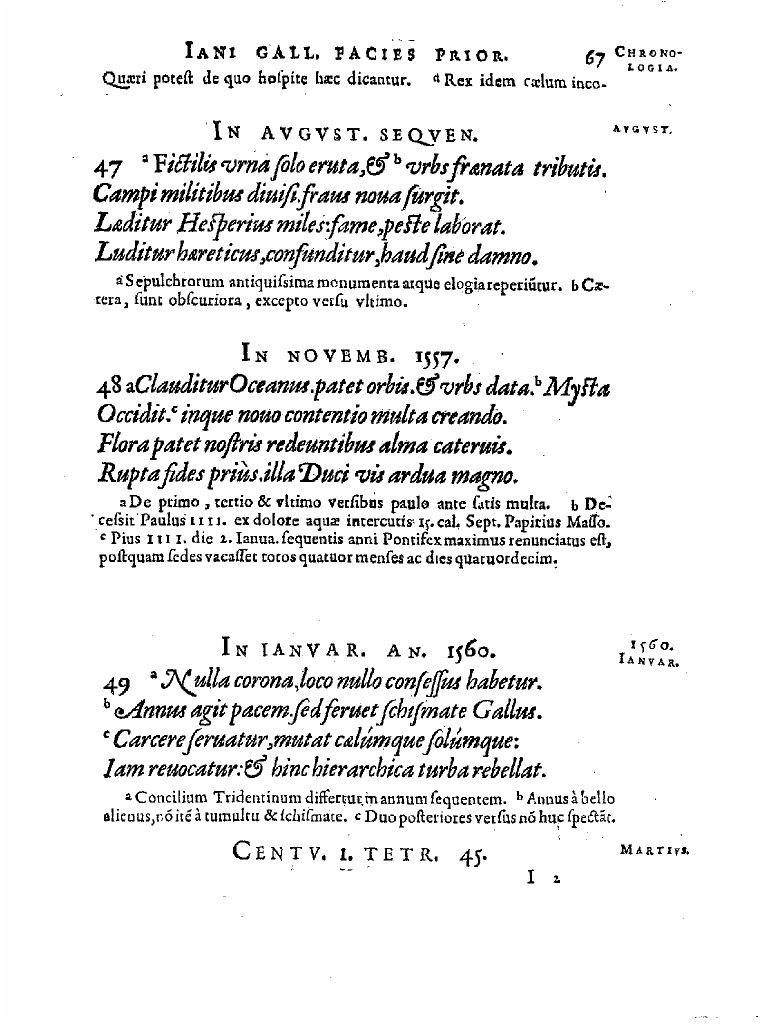 IANI GALL. FACIES PRIOR. 67 CHRONO-
LOGIA.
Quæri potest de quo hospite hæc dicantur. ᵈ Rex idem cælum inco-
IN AVGVST. SEQVEN. AVGVST.
47 ᵃ Fictilis vrna solo eruta, & ᵇ vrbs frænata tributis.
Campi militibus diuisi. fraus noua surgit.
Læditur Hesperius miles: fame, peste laborat.
Luditur hæreticus, confunditur, haud sine damno.
a Sepulchrorum antiquissima monumenta atque elogia reperiũtur. b Cæ-
tera, sunt obscuriora, excepto versu vltimo.
IN NOVEMB. 1557.
48 a Clauditur Oceanus. patet orbis. & vrbs data. ᵇ Mysta
Occidit. ᶜ inque nouo contentio multa creando.
Flora patet nostris redeuntibus alma cateruis.
Rupta fides priùs. illa Duci vis ardua magno.
a De primo, tertio & vltimo versibus paulo ante satis multa. b De-
cessit Paulus IIII. ex dolore aquæ intercutis 15. cal. Sept. Papirius Masso.
ᶜ Pius IIII. die 2. Ianua. sequentis anni Pontifex maximus renunciatus est,
postquam sedes vacasset totos quatuor menses ac dies quatuordecim.
IN IANVAR. AN. 1560. 1560.
IANVAR.
49 ᵃ Nulla corona, loco nullo consessus habetur.
ᵇ Annus agit pacem. sed feruet schismate Gallus.
ᶜ Carcere seruatur, mutat cælúmque solúmque:
Iam reuocatur: & hinc hierarchica turba rebellat.
a Concilium Tridentinum differtur in annum sequentem. ᵇ Annus à bello
alienus, nõ itẽ à tumultu & schismate. ᶜ Duo posteriores versus nõ huc spectãt.
CENTV. I. TETR. 45. MARTIVS.
I 2